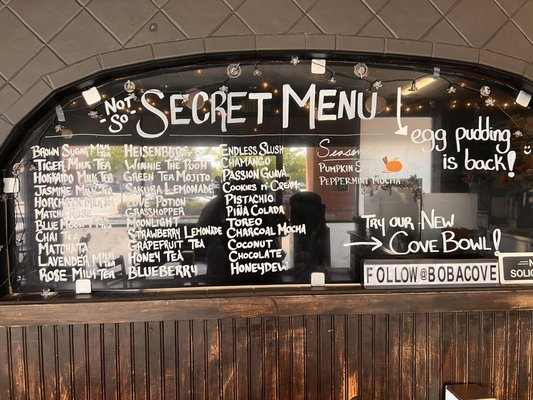 Not So Secret Menu
Brown Sugar Milk Tea
Tiger Milk Tea
Hokkaido Milk Tea
Jasmine Milk Tea
Horchata
Matcha
Blue Moon
Chai Tea
Matchata
Lavender Milk Tea
Rose Milk Tea
Heisenberg
Winnie The Pooh
Green Tea Mojito
Sakura Lemonade
Love Potion
Grasshopper
Moonlight
Strawberry Lemonade
Grapefruit Tea
Honey Tea
Blueberry
Endless Slush
Chamango
Passion Guava
Cookies n' Cream
Pistachio
Piña Colada
Toreo
Charcoal Mocha
Coconut
Chocolate
Honeydew
Pumpkin
Peppermint Mocha
egg pudding
is back!
Try our New
Cove Bowl!
FOLLOW @BOBACOVE